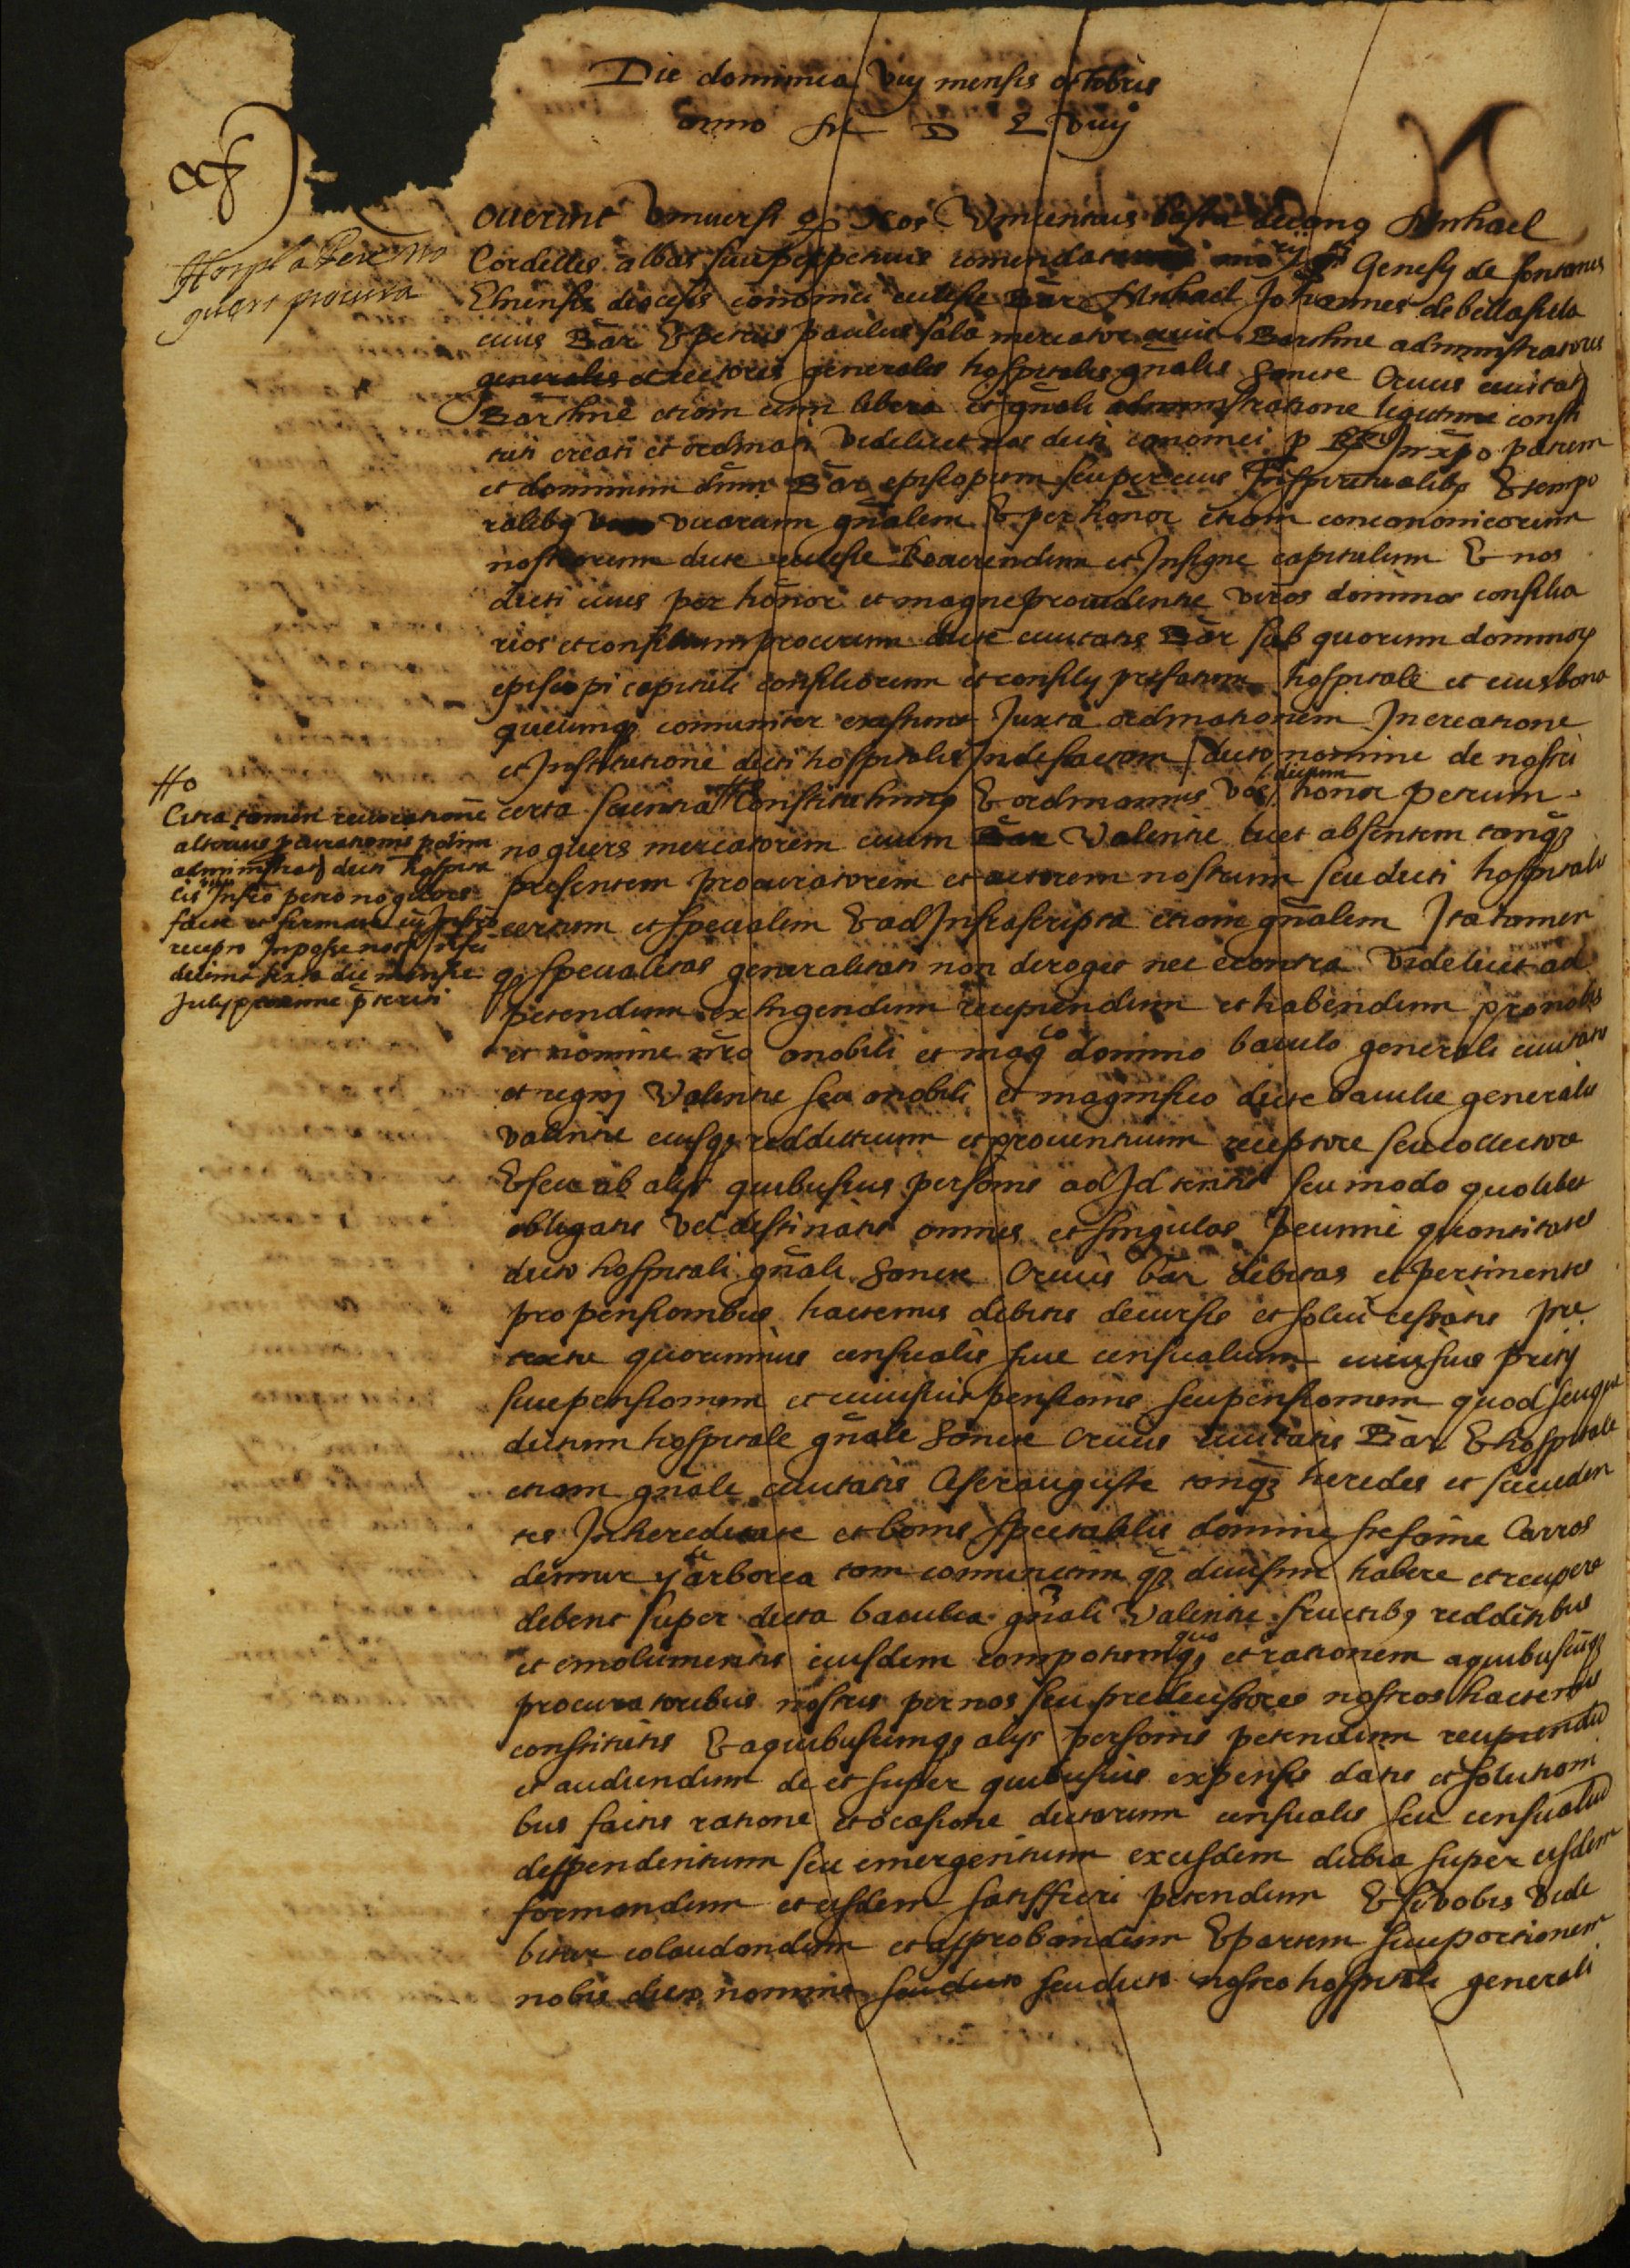 Die dominica viij mensis octobris
anno M D L viiij
Noverint Universi q Nos Vincentius decanq Michael
Cordelles abbas seu perpetuus comendatarius Genesij de fontanes
Elnensis diocesis canonici ecclesie Bar Michael Johannes de bellafila
civis Bar & petrus paulus sala mercator civis Barchne administratores
generales et rectores generales hospitalis gnalis Sancte Crucis civitatis
Barchne etiam cum libera et gnali administratione legittime consti
tuti creati et ordinati videlicet nos dicti canonici p Rm In xpo patrem
et dominum dnm Bar episcopum seu per eius In spiritualibq & tempo
ralibq vicarium gnalem & per honor etiam concanonicorum
nostrorum dicte ecclesie Reverendum et Insigne capitulum & nos
dicti cives per honor et magne providentie viros dominos consilia
rios et consilium procerum dicte civitatis Bar sub quorum dominorum
episcopi capituli consiliorum et consilij prefatum hospitale et eius bona
quecumq comuniter existunt Juxta ordinationem In creatione
et Institutione dicti hospitalis Inde factam dicto nomine de nostri
certa scientia # Constituhimq & ordinamus vos dictum honor petrum
nogueres mercatorem civem Valentie licet absentem tanq
presentem procuratorem et actorem nostrum seu dicti hospitalis
certum et specialem & ad Infrascripta etiam gnalem Ita tamen
q specialitas generalitati non deroget nec econtra Videlicet ad
petendum exhigendum recipiendum et habendum pro nobis
et nomine nro a nobili et magco domino baiulo generali civitatis
et regnj Valentie seu a nobili et magnifico dicte baiulie generalis
valentie eiusq reddituum et proventuum receptore seu collectore
& seu ab alijs quibusvis personis ad Id tentis seu modo quolibet
obligatis vel destinatis omnes et singulas peccunie quantitates
dicto hospitali gnali Sancte Crucis bar debitas et pertinentes
pro pensionibus hactenus debitis decursis et solui cessatis pre
textu quorumvis censualis sive censualium cuiusvis precij
sive pensionem et cuiusvis pensionis seu pensionum quod seu que
dictum hospitale gnale Sancte Crucis civitatis Bar & hospitale
etiam gnale civitatis Cesarauguste tanq heredes et succeden
tes In hereditate et bonis spectabilis domine stefanie Carros
de arborea tam comunctim q divisim habere et recipere
debent super dicta baiulia gnali Valentie fructibq redditibus
et emolumentis eiusdem compotumq quo et rationem a quibuscuq
procuratoribus nostris per nos seu predecissores nostros hactenus
constitutis & a quibuscumq alijs personis petendum recipiendu
et audiendum de et super quibusvis expensis datis et solutioni
bus factis ratione et ocasione dictorum censualis seu censualiu
despendentium seu emergentium ex eisdem dubia super eisdem
formandum et eisdem satisffieri petendum & si vobis vide
bitur colaudandum et approbandum & partem sive portionem
nobis dicto nomine seu dicto seu dicto nostro hospitali generali
Hospl a Pere no
guers procura
#o
Citra tamen revocatione
alterius procurationis p dnm
administrat dicti hospita
lis Infro petro nogueres
facte et firmate
recepta In posse nots Infri
decima sexta die mensis
Julij proxime p teriti